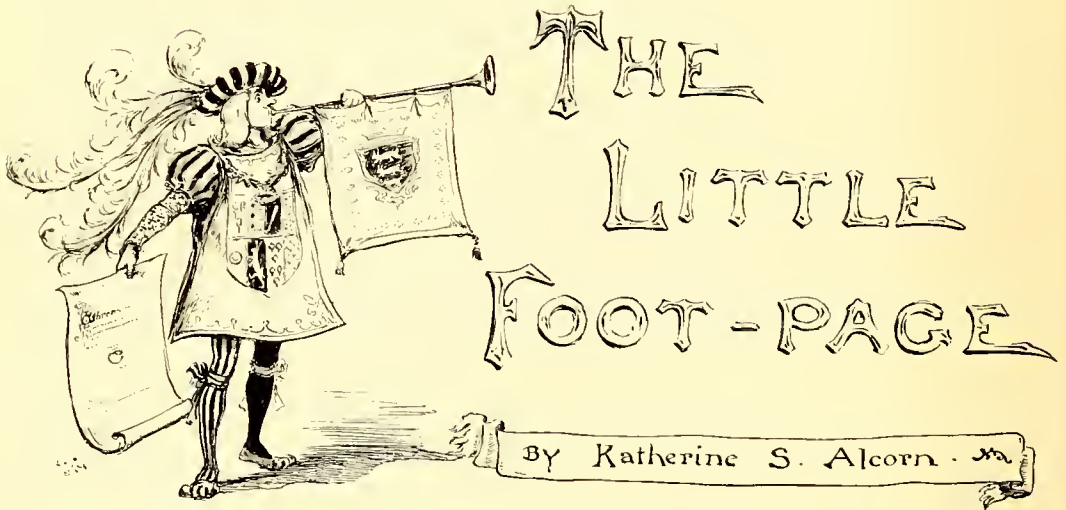 THE
LITTLE
FOOT-PAGE
BY Katherine S. Alcorn.